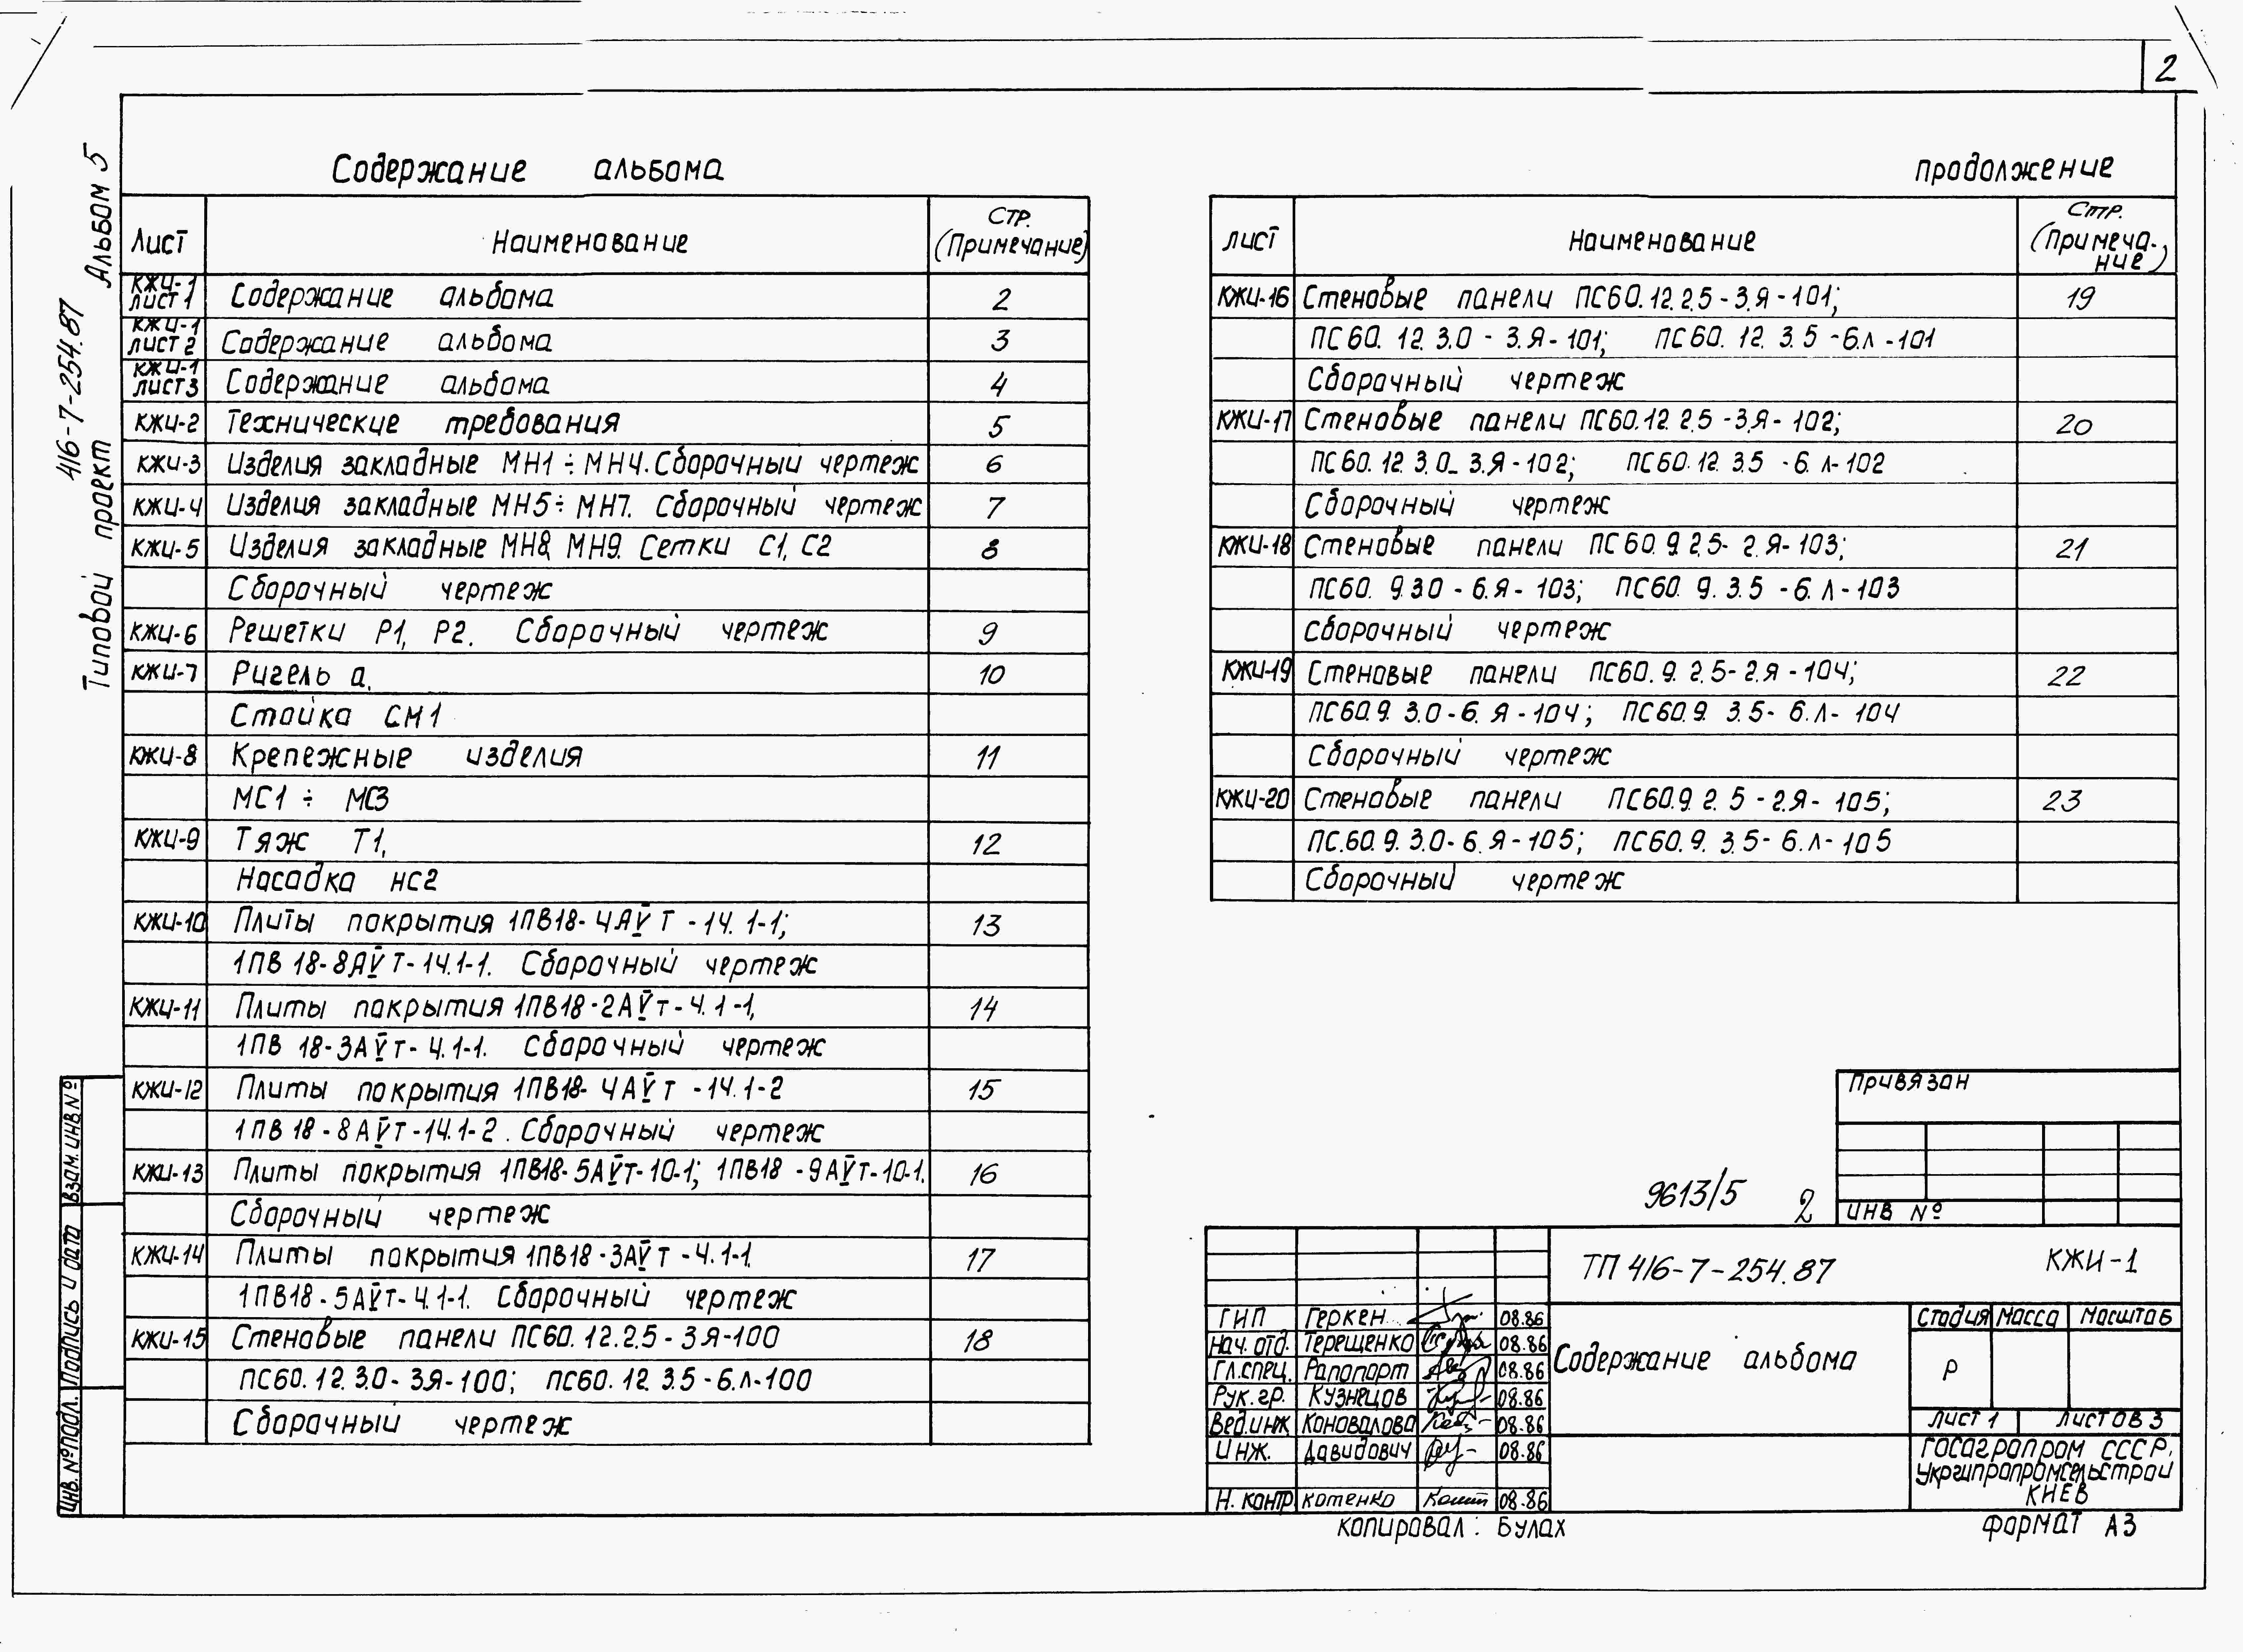 2
Типовой проект 416-7-254.87 Альбом 5
Содержание альбома
Лист Наименование Стр. (Примечание)
КЖИ-1 лист 1 Содержание альбома 2
КЖИ-1 лист 2 Содержание альбома 3
КЖИ-1 лист 3 Содержание альбома 4
КЖИ-2 Технические требования 5
КЖИ-3 Изделия закладные МН1÷МН4. Сборочный чертеж 6
КЖИ-4 Изделия закладные МН5÷МН7. Сборочный чертеж 7
КЖИ-5 Изделия закладные МН8, МН9. Сетки С1, С2 8
Сборочный чертеж
КЖИ-6 Решетки Р1, Р2. Сборочный чертеж 9
КЖИ-7 Ригель а, 10
Стойка СМ1
КЖИ-8 Крепежные изделия 11
МС1 ÷ МС3
КЖИ-9 Тяж Т1, 12
Насадка НС2
КЖИ-10 Плиты покрытия 1ПВ18-4АV Т-14.1-1; 13
1ПВ 18-8АV Т-14.1-1. Сборочный чертеж
КЖИ-11 Плиты покрытия 1ПВ18-2АVт-4.1-1, 14
1ПВ 18-3АVт-4.1-1. Сборочный чертеж
КЖИ-12 Плиты покрытия 1ПВ18-4АV т-14.1-2 15
1ПВ 18-8АVт-14.1-2. Сборочный чертеж
КЖИ-13 Плиты покрытия 1ПВ18-5АVт-10-1; 1ПВ18-9АVт-10-1. 16
Сборочный чертеж
КЖИ-14 Плиты покрытия 1ПВ18-3АVт-4.1-1. 17
1ПВ18-5АVт-4.1-1. Сборочный чертеж
КЖИ-15 Стеновые панели ПС60.12.2.5-3Я-100 18
ПС60.12.3.0-3.Я-100; ПС60.12.3.5-6.Л-100
Сборочный чертеж
продолжение
лист Наименование Стр. (Примечание)
КЖИ-16 Стеновые панели ПС60.12.2.5-3.Я-101; 19
ПС60.12.3.0-3.Я-101; ПС60.12.3.5-6.Л-101
Сборочный чертеж
КЖИ-17 Стеновые панели ПС60.12.2.5-3.Я-102; 20
ПС60.12.3.0-3.Я-102; ПС60.12.3.5-6.Л-102
Сборочный чертеж
КЖИ-18 Стеновые панели ПС60.9.2.5-2.Я-103; 21
ПС60.9.3.0-6.Я-103; ПС60.9.3.5-6.Л-103
Сборочный чертеж
КЖИ-19 Стеновые панели ПС60.9.2.5-2.Я-104; 22
ПС60.9.3.0-6.Я-104; ПС60.9.3.5-6.Л-104
Сборочный чертеж
КЖИ-20 Стеновые панели ПС60.9.2.5-2.Я-105; 23
ПС.60.9.3.0-6.Я-105; ПС60.9.3.5-6.Л-105
Сборочный чертеж
Привязан
ИНВ №
9613/5 2
ТП 416-7-254.87 КЖИ-1
ГИП Геркен 08.86
Нач. отд. Терещенко 08.86
Гл.спец. Рапопорт 08.86
Рук. гр. Кузнецов 08.86
Вед.инж Коновалова 08.86
Инж. Давидович 08.86
Н. контр Котенко 08.86
Содержание альбома
Стадия Масса Масштаб
Р
Лист 1 Листов 3
Госагропром СССР.
Укргипропромсельстрой
Киев
Копировал: Булах
Формат А3
Взам. инв №
Подпись и дата
Инв. № подл.